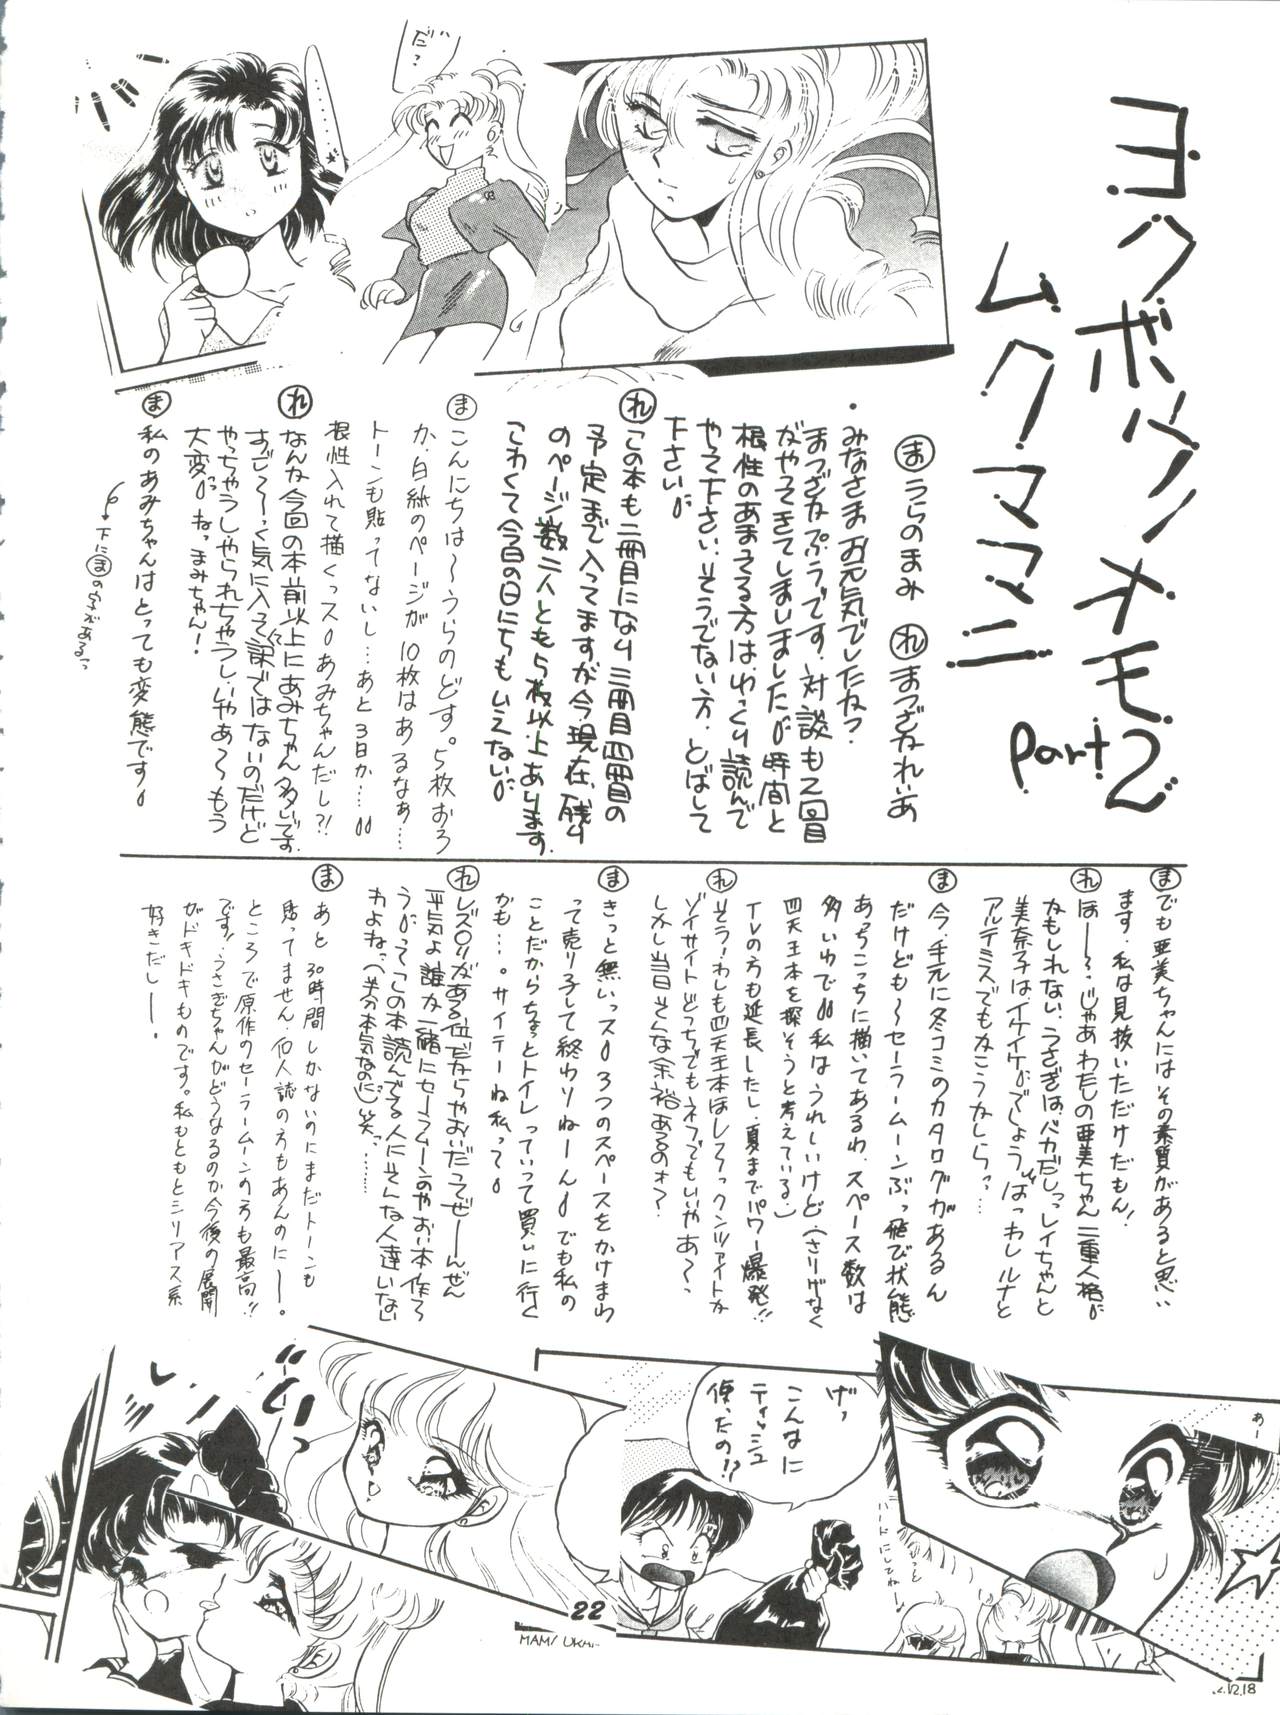 ヨクボウノメモ
ムクママニ
part2
だ?
まうらのまみ れまつざかれいあ
・みなさまお元気でしたね?
まつざかぷらです、対談も2回目
がやってきてしましました 時間と
根性のあまってる方は、ゆっくり読んで
やって下さい、そうでない方、とばして
下さい
れこの本も二冊目になり三冊目四冊目の
予定まで入ってますが今現在、残り
のページ数二人とも5枚以上あります
こわくて今日の日にちもいえない
まこんにちは〜うらのどす。5枚おろ
か、白紙のページが10枚はあるなぁ…
トーンも貼ってないし…あと3日か…
根性入れて描くっス あみちゃんだし?!
れなんか今回の本前以上にあみちゃん多いです
すご〜〜く気に入って訳ではないのだけど
やっちゃうしやられちゃうし、いやぁ〜もう
大変 ねっまみちゃん!
ま私のあみちゃんはとっても変態です
下にまの字があるっ
までも亜美ちゃんにはその素質があると思い
ます、私は見抜いただけだもん!
れほー〜っ、じゃあわたしの亜美ちゃん二重人格
かもしれない、うさぎは、バカだしっレイちゃんと
美奈子はイケイケ でしょうっばっわしルナと
アルテミスでもかこうかしらっ…
ま今、手元に冬コミのカタログがあるん
だけども〜セーラームーンぶっ飛び状態
あっちこっちに描いてあるわ、スペース数は
多いわで 私はうれしいけど、(さりげなく
四天王本を探そうと考えている。)
イレの方も延長したし、夏までパワー爆発!!
れそう!わしも四天王本はしてるっクンツァイトか
ゾイサイトどっちでもネフでもいいやあ〜っ
しかし当日そんな余裕あるのォ?
まきっと無いっス 3つのスペースをかけまわ
って売り子して終わりねーん でも私の
ことだからちょっとトイレっていって買いに行く
かも…。サイテーね私って
れレズ があるくらいだからやおいだってぜーんぜん
平気よ 誰か一緒にセーラームーンのやおい本作ろ
う ってこの本読んでる人にそんな人達いない
わよねっ(半分本気なのに)笑っ……
まあと30時間しかないのにまだトーンも
貼ってません、個人誌の方もあんのにー。
ところで原作のセーラームーンの方も最高!!
です!!うさぎちゃんがどうなるのか今後の展開
がドキドキものです。私もともとシリアス系
好きだしー。
げっ
こんなに
ティッシュ
使ったの!?
あー
もっと
ハードにしてねー
22
MAMI UKAI
12.18